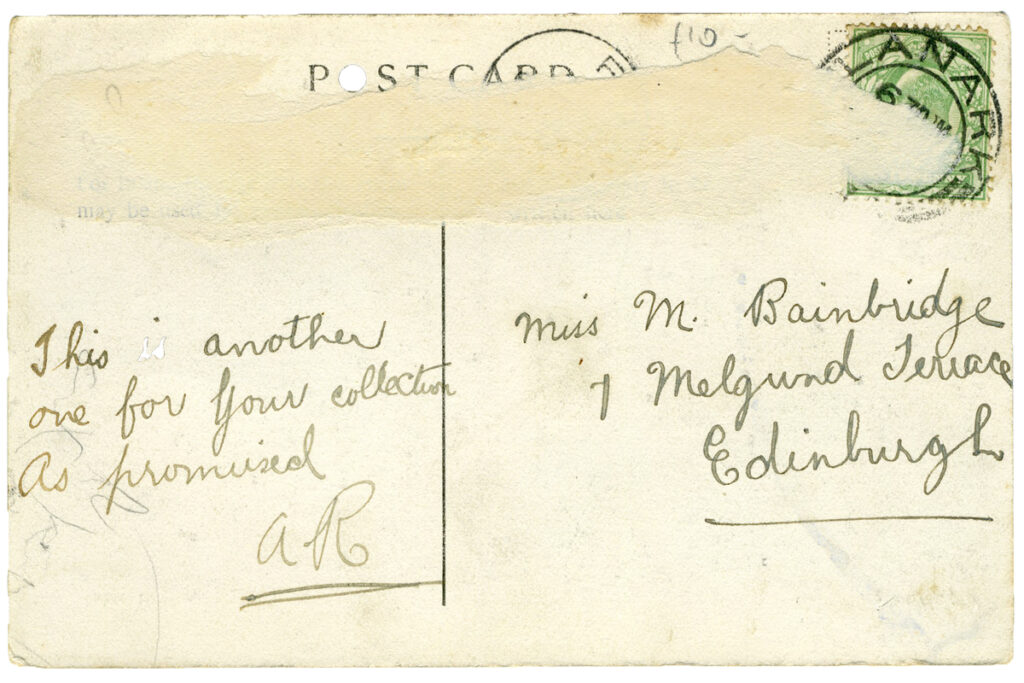 £10-
POST CARD
LANARK
6
may be used
This is another
one for your collection
As promised
AR
Miss M. Bainbridge
7 Melgund Terrace
Edinburgh